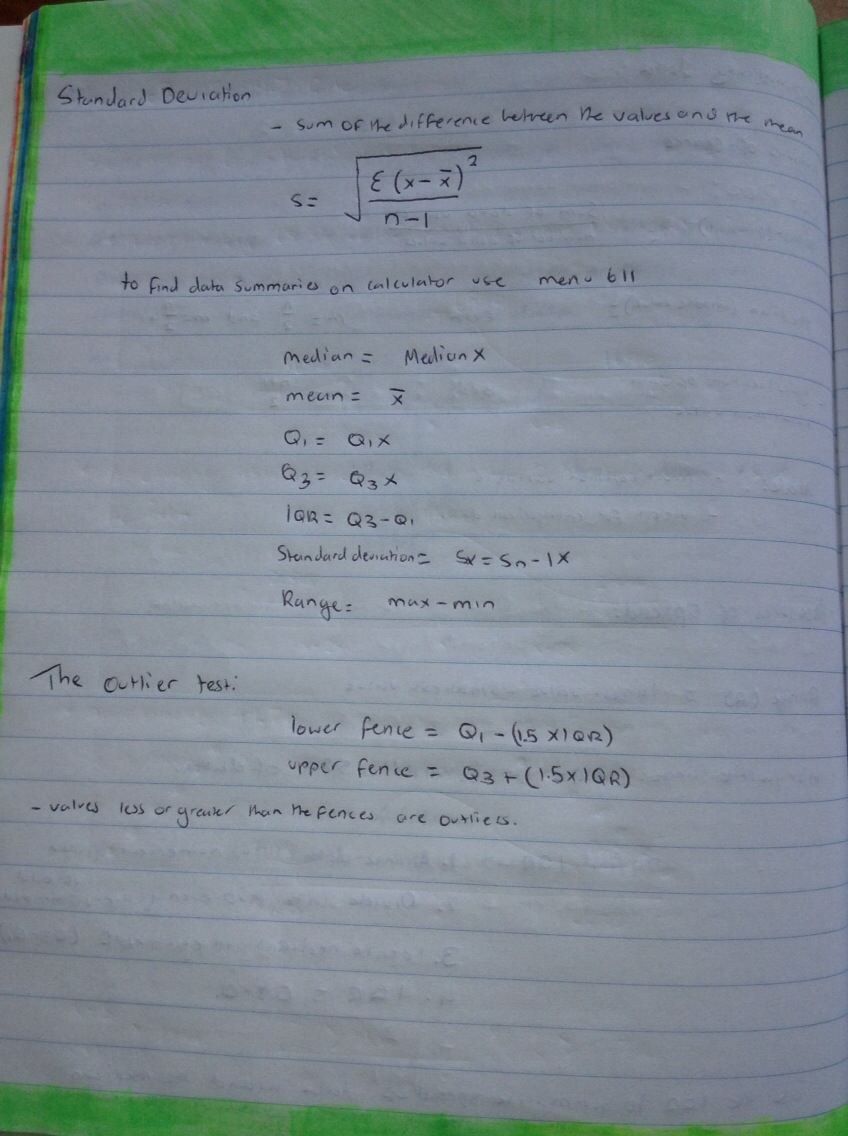 Standard Deviation
- sum of the difference between the values and the mean
s= √(Σ(x-x̄)²/n-1)
to find data summaries on calculator use menu 611
median = Median X
mean = x̄
Q₁ = Q₁X
Q3 = Q3X
IQR = Q3-Q₁
Standard deviation = Sx = Sn-1X
Range = max-min
The outlier test:
lower fence = Q₁-(1.5×IQR)
upper fence = Q3+(1.5×IQR)
- values less or greater than the fences are outliers.